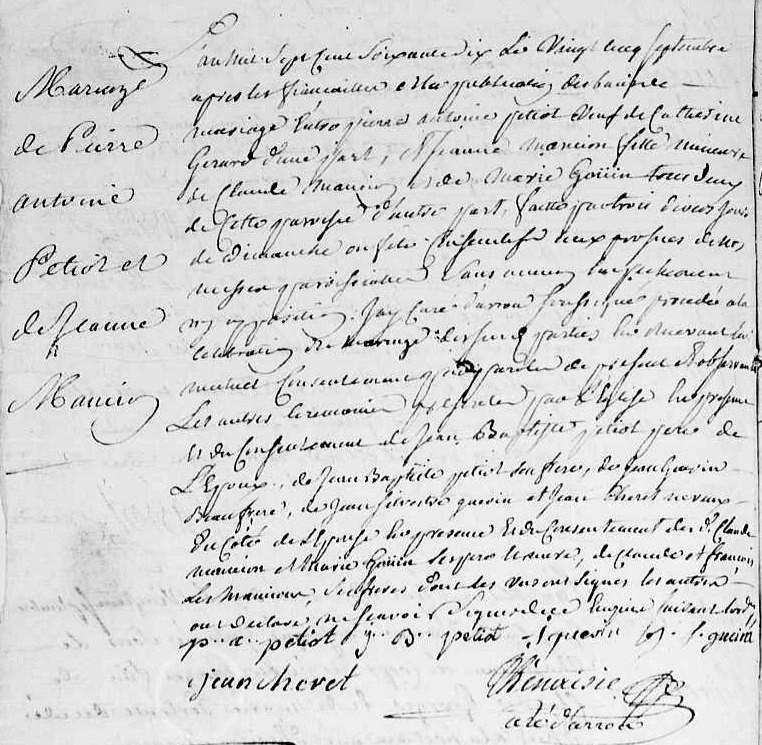 Mariage
de Pierre
antoine
Petiot et
de Jeanne
Mancion
L'an mil sept cent soixante dix le vingt cinq septembre
apres les fiancailles et la publication des bans de
mariage Entre pierre antoine petiot veuf de Catherine
Gerard d'une part, et Jeanne mancion fille mineure
de Claude mancion et de marie Goüin tous deux
de Cette paroisse d'autre part, faitte par trois divers jours
de dimanche ou fête Consecutifs aux prosnes de nos
messes paroissialles Sans aucun Empechement
ny opposition, Jay Curé d'arrou Soussigné procedé a la
celebration du mariage desdites parties En recevant leur
mutuel Consentement par parolles de present Et observant
Les autres Ceremonies par l'Eglise En presence
Et du Consentement de Jean Baptiste petiot pere de
L'Epoux, de Jean Baptiste petiot son frere, de Jean Guerin
Beaufrere, de Jean Silvestre guerin et Jean Chevet neveux
du Coté de l'Epouse En presence Et du Consentement de Claude
mancion et Marie Goüin Ses pere et mere, de Claude et francois
Les Mancion, Ses freres dont les uns ont Signés les autres
ont declaré ne Scavoir Signer de ce Enquis Suivant l'ord
p. a. petiot J. B. petiot J guerin J. S. guerin
jean chevet
curé d'arrou